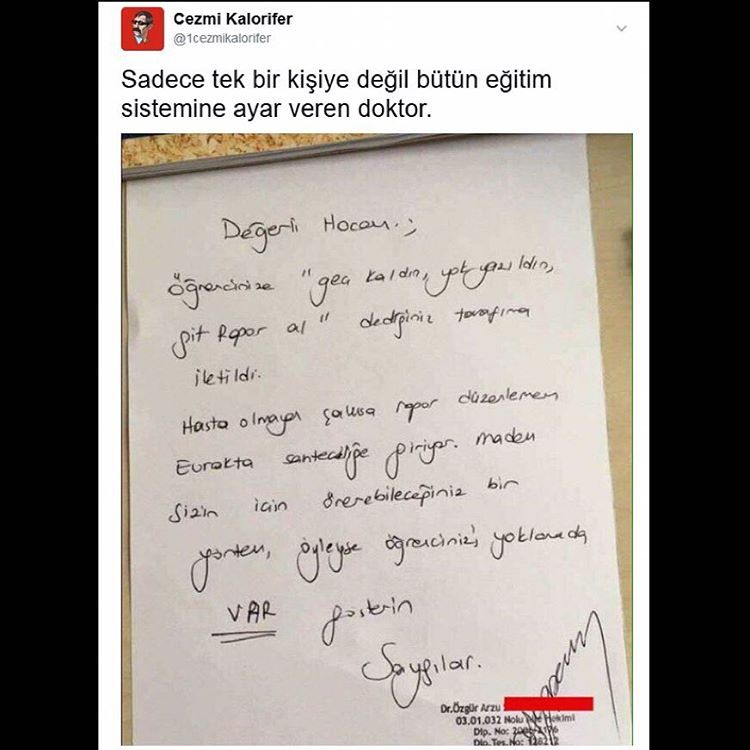 Cezmi Kalorifer
@1cezmikalorifer
Sadece tek bir kişiye değil bütün eğitim
sistemine ayar veren doktor.
Değerli Hocam.;
Öğrencinize "geç kaldın, yok yazıldın,
git Rapor al" dediğiniz tarafıma
iletildi.
Hasta olmayan şahısa rapor düzenlemem
Evrakta sahteciliğe giriyor. madem
Sizin için önerebileceğiniz bir
yöntem, öyleyse öğrencinizi yoklamada
VAR gösterin
Saygılar.
Dr.Özgür Arzu
03.01.032 Nolu Aile Hekimi
Dip. No:
Dip.Tes.No: 128212